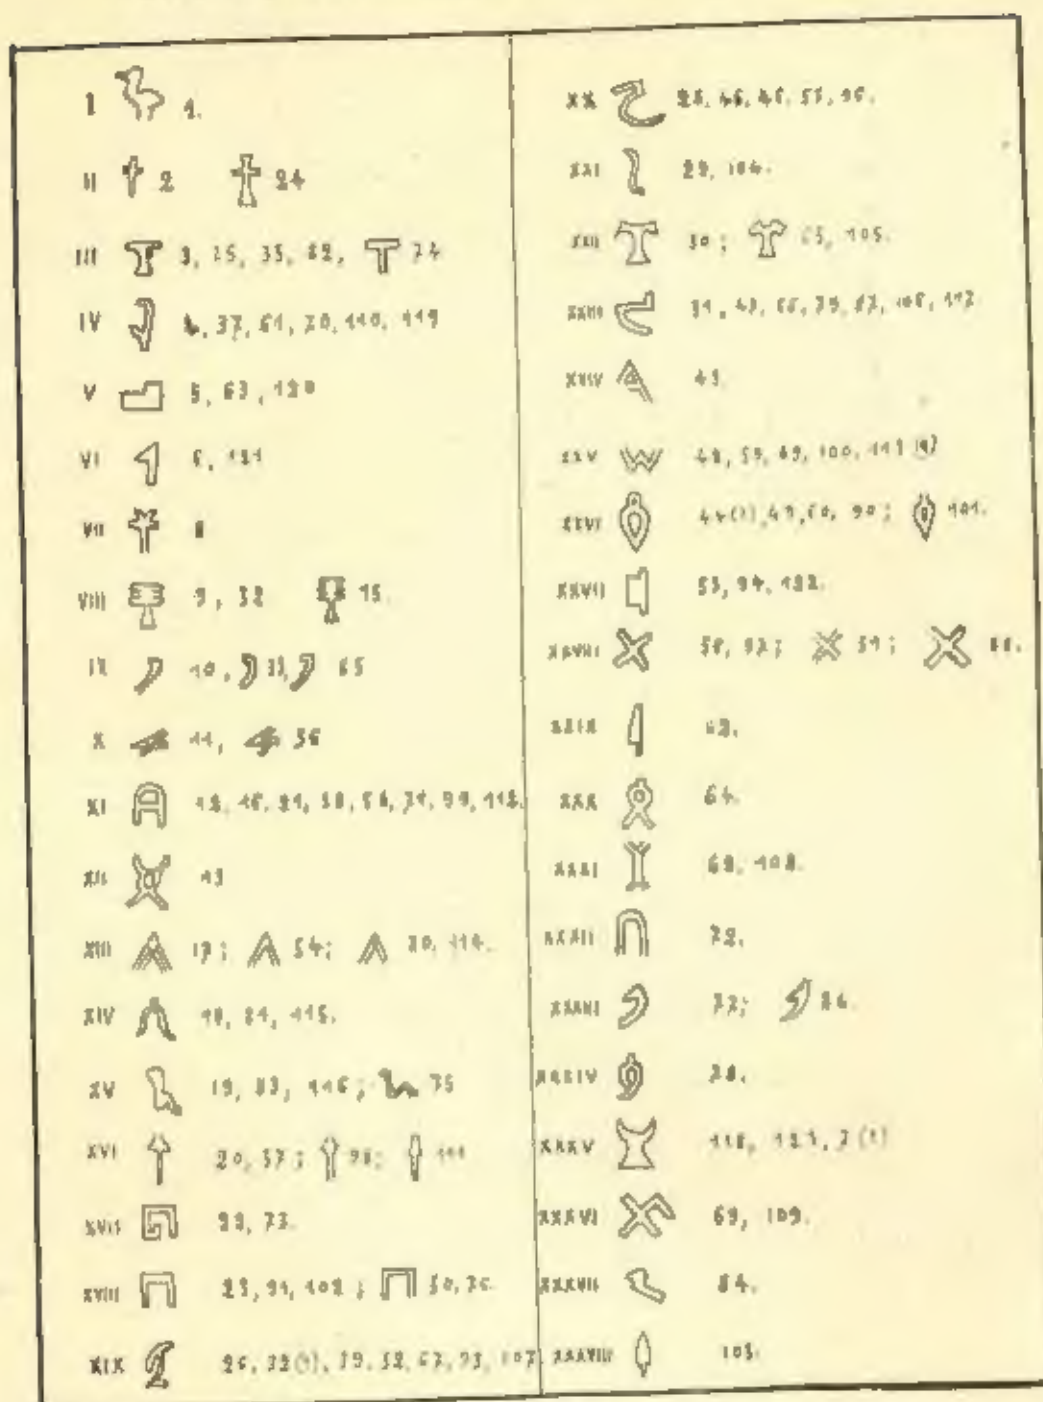 I 1.
II 2 24
III 3, 25, 35, 82, 74
IV 4, 37, 61, 70, 110, 119
V 5, 63, 120
VI 6, 121
VII 8
VIII 9, 32 15.
IX 10, 33, 65
X 11, 36
XI 12, 16, 21, 38, 56, 71, 99, 112.
XII 13
XIII 17; 54; 114.
XIV 18, 81, 115.
XV 19, 83, 116; 75
XVI 20, 57; 98; 111
XVII 22, 73.
XVIII 23, 91, 102; 50, 76.
XIX 26, 32(?), 39, 52, 67, 93, 107
XX 55,
XXI 29, 104.
XXII 30; 105.
XXIII 31, 47, 66, 79, 87, 106, 117
XXIV 43.
XXV 48, 59, 89, 100, 113 (?)
XXVI 44(?), 49, 60, 90; 101.
XXVII 53, 94, 122.
XXVIII 58, 92; 51;
XXIX 62.
XXX 64.
XXXI 68, 108.
XXXII 72.
XXXIII 77; 86.
XXXIV 78.
XXXV 118, 123, 7(?)
XXXVI 69, 109.
XXXVII 84.
XXXVIII 103.